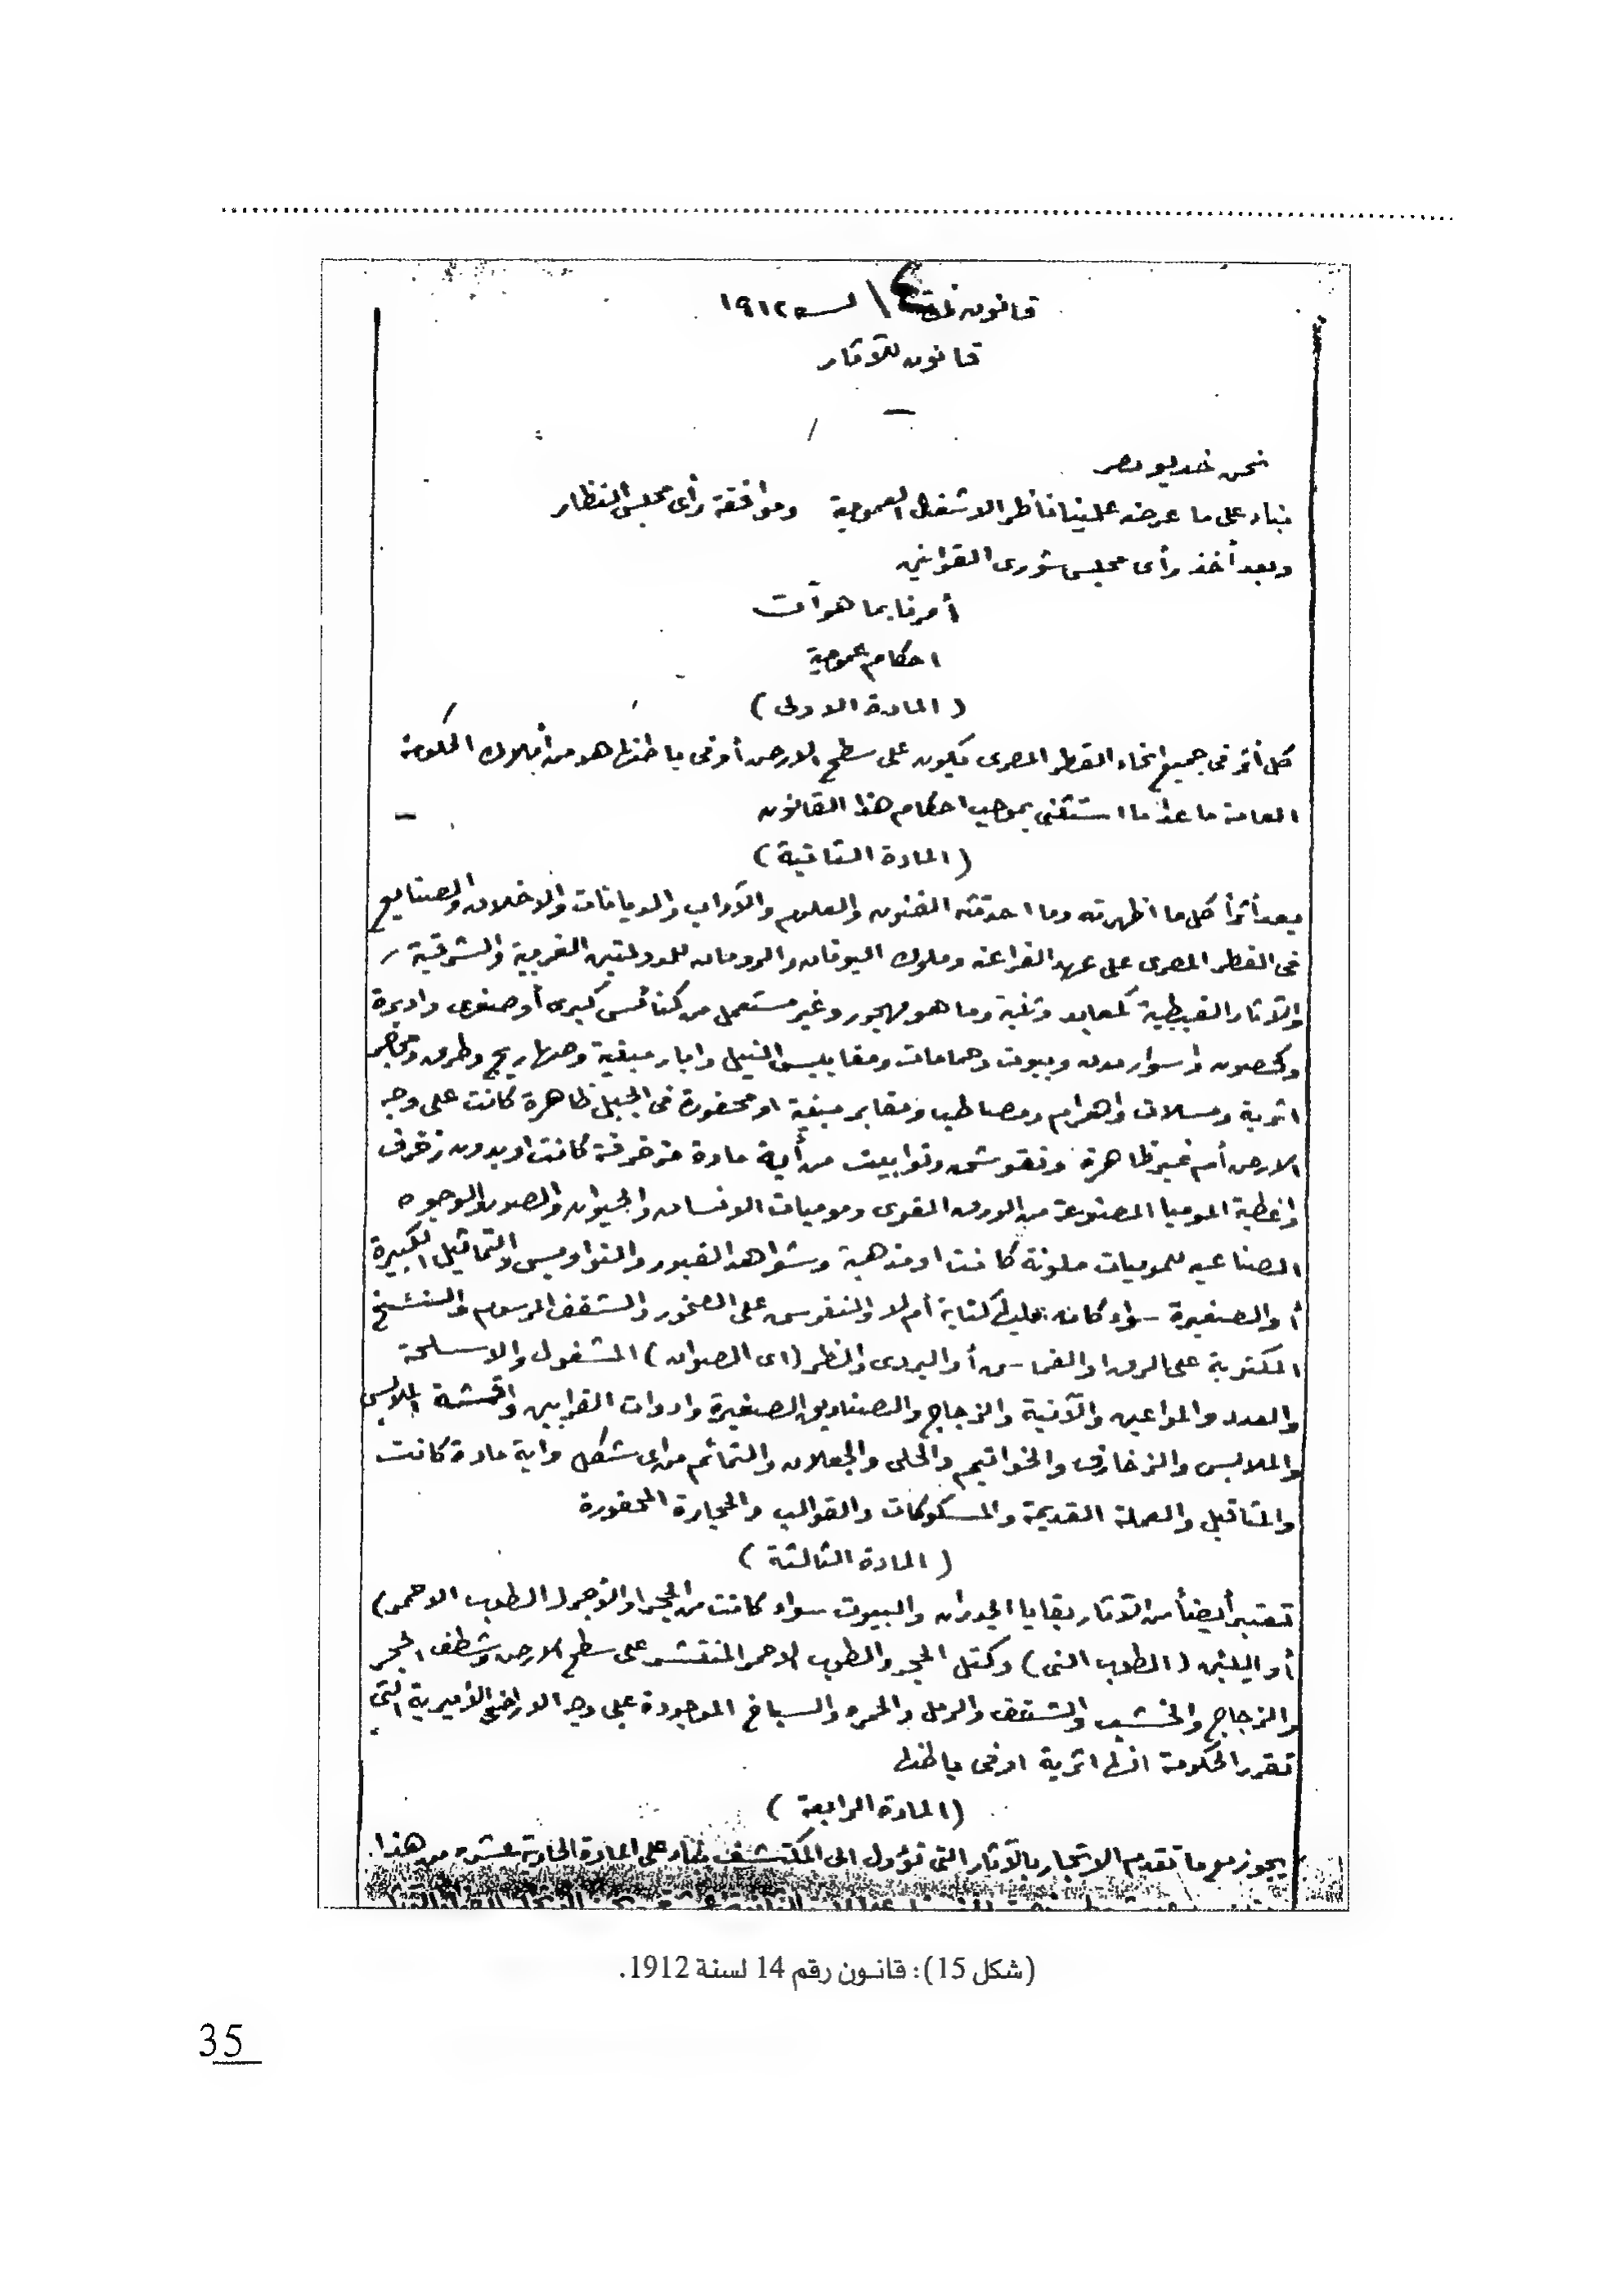 قانون نمرة ١٤ لسنة ١٩١٢
قانون للآثار
نحن خديو مصر
بناء على ما عرضه علينا ناظر الاشغال العمومية وموافقة رأى مجلس النظار
وبعد أخذ رأى مجلس شورى القوانين
أمرنا بما هو آت
احكام عمومية
(المادة الاولى)
كل أثر فى جميع انحاء القطر المصرى يكون على سطح الارض أو فى باطنها هو من أملاك الحكومة
العامة ما عدا ما استثنى بموجب احكام هذا القانون
(المادة الثانية)
يعد أثرا كل ما اظهرته وما احدثته الفنون والعلوم والآداب والديانات والاخلاق والصنايع
فى القطر المصرى على عهد الفراعنه وملوك اليونان والرومان للدولتين الغربية والشرقية
والآثار القبطية كمعابد وثنية وما هو مهجور وغير مستعمل من كنائس كبرى أو صغرى واديرة
وكحصون واسوار مدن وبيوت وحمامات ومقاييس النيل وابار مبنية وصهاريج وطرق ومحاجر
اثرية ومسلات واهرام ومصاطب ومقابر مبنية او محفورة فى الجبل ظاهرة كانت على وجه
الارض أم غير ظاهرة ونقوش وتوابيت من أية مادة مزخرفة كانت او بدون زخرف
واغطية الموميا المصنوعة من الورق المقوى وموميات الانسان والحيوان والصور والوجوه
الصناعيه للموميات ملونة كانت او مذهبة وشواهد القبور والنواويس والتماثيل الكبيرة
أو الصغيرة سواء كان عليها كتابة أم لا والنقوش على الصخور والشقف المرسوم والنسخ
المكتوبة على الرق او القماش أو البردى والظر (اى الصوان) المشغول والاسلحة
والعدد والمواعين والآنية والزجاج والصناديق الصغيرة وادوات القرابين واقمشة الملابس
والملابس والزخارف والخواتيم والحلى والجعلان والتمائم من اى شكل واية مادة كانت
والمثاقيل والعملة القديمة والمسكوكات والقوالب والحجارة المحفورة
(المادة الثالثة)
تعتبر أيضا من الآثار بقايا الجدران والبيوت سواء كانت من الحجر او الآجر (الطوب الاحمر)
أو اللبن (الطوب النى) وكتل الحجر والطوب الاحمر المنتشر على سطح الارض وشطف الحجر
والزجاج والخشب والشقف والرمل والحمره والسباخ الموجودة على وجه الاراضى الأميرية التى
تقرر الحكومة انها اثرية او فى باطنها
(المادة الرابعة)
يجوز مع ما تقدم الاتجار بالآثار التى تؤول الى المكتشف بناء على المادة الحادية عشرة من هذا
(شكل 15): قانون رقم 14 لسنة 1912.
35